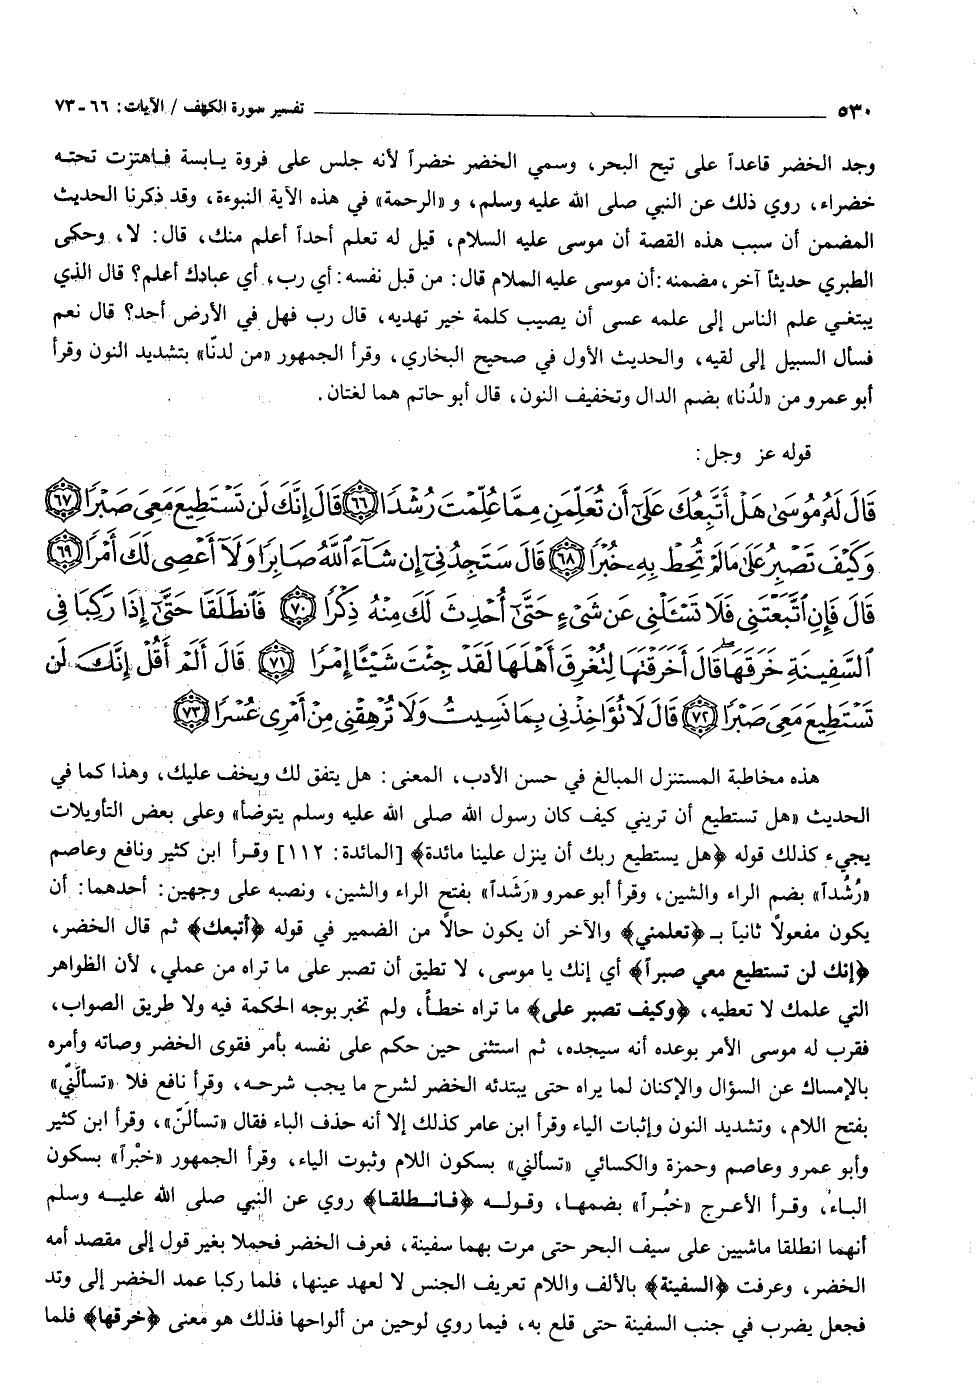 ٥٣٠ تفسير سورة الكهف / الآيات: ٦٦ - ٧٣
وجد الخضر قاعداً على تيح البحر، وسمي الخضر خضراً لأنه جلس على فروة يابسة فاهتزت تحته
خضراء، روي ذلك عن النبي صلى الله عليه وسلم، و «الرحمة» في هذه الآية النبوءة، وقد ذكرنا الحديث
المضمن أن سبب هذه القصة أن موسى عليه السلام، قيل له تعلم أحداً أعلم منك، قال: لا، وحكى
الطبري حديثاً آخر، مضمنه: أن موسى عليه السلام قال: من قبل نفسه: أي رب، أي عبادك أعلم؟ قال الذي
يبتغي علم الناس إلى علمه عسى أن يصيب كلمة خير تهديه، قال رب فهل في الأرض أحد؟ قال نعم
فسأل السبيل إلى لقيه، والحديث الأول في صحيح البخاري، وقرأ الجمهور «من لدنّا» بتشديد النون وقرأ
أبو عمرو من «لدُنا» بضم الدال وتخفيف النون، قال أبو حاتم هما لغتان.
قوله عز وجل:
قَالَ لَهُۥ مُوسَىٰ هَلْ أَتَّبِعُكَ عَلَىٰٓ أَن تُعَلِّمَنِ مِمَّا عُلِّمْتَ رُشْدًا ﴿٦٦﴾ قَالَ إِنَّكَ لَن تَسْتَطِيعَ مَعِيَ صَبْرًا ﴿٦٧﴾
وَكَيْفَ تَصْبِرُ عَلَىٰ مَا لَمْ تُحِطْ بِهِۦ خُبْرًا ﴿٦٨﴾ قَالَ سَتَجِدُنِىٓ إِن شَآءَ ٱللَّهُ صَابِرًا وَلَآ أَعْصِى لَكَ أَمْرًا ﴿٦٩﴾
قَالَ فَإِنِ ٱتَّبَعْتَنِى فَلَا تَسْـَٔلْنِى عَن شَىْءٍ حَتَّىٰٓ أُحْدِثَ لَكَ مِنْهُ ذِكْرًا ﴿٧٠﴾ فَٱنطَلَقَا حَتَّىٰٓ إِذَا رَكِبَا فِى
ٱلسَّفِينَةِ خَرَقَهَا ۖ قَالَ أَخَرَقْتَهَا لِتُغْرِقَ أَهْلَهَا لَقَدْ جِئْتَ شَيْـًٔا إِمْرًا ﴿٧١﴾ قَالَ أَلَمْ أَقُلْ إِنَّكَ لَن
تَسْتَطِيعَ مَعِيَ صَبْرًا ﴿٧٢﴾ قَالَ لَا تُؤَاخِذْنِى بِمَا نَسِيتُ وَلَا تُرْهِقْنِى مِنْ أَمْرِى عُسْرًا ﴿٧٣﴾
هذه مخاطبة المستنزل المبالغ في حسن الأدب، المعنى: هل يتفق لك ويخف عليك، وهذا كما في
الحديث «هل تستطيع أن تريني كيف كان رسول الله صلى الله عليه وسلم يتوضأ» وعلى بعض التأويلات
يجيء كذلك قوله ﴿هل يستطيع ربك أن ينزل علينا مائدة﴾ [المائدة: ١١٢] وقرأ ابن كثير ونافع وعاصم
«رُشُداً» بضم الراء والشين، وقرأ أبو عمرو «رَشَداً» بفتح الراء والشين، ونصبه على وجهين: أحدهما: أن
يكون مفعولًا ثانياً بـ ﴿تعلمني﴾ والآخر أن يكون حالًا من الضمير في قوله ﴿أتبعك﴾ ثم قال الخضر،
﴿إنك لن تستطيع معي صبراً﴾ أي إنك يا موسى، لا تطيق أن تصبر على ما تراه من عملي، لأن الظواهر
التي علمك لا تعطيه، ﴿وكيف تصبر على﴾ ما تراه خطأ، ولم تخبر بوجه الحكمة فيه ولا طريق الصواب،
فقرب له موسى الأمر بوعده أنه سيجده، ثم استثنى حين حكم على نفسه بأمر فقوى الخضر وصاته وأمره
بالإمساك عن السؤال والإكنان لما يراه حتى يبتدئه الخضر لشرح ما يجب شرحه، وقرأ نافع فلا «تسألَنّي»
بفتح اللام، وتشديد النون وإثبات الياء وقرأ ابن عامر كذلك إلا أنه حذف الياء فقال «تسألَنّ»، وقرأ ابن كثير
وأبو عمرو وعاصم وحمزة والكسائي «تسألني» بسكون اللام وثبوت الياء، وقرأ الجمهور «خبْراً» بسكون
الباء، وقرأ الأعرج «خبُراً» بضمها، وقوله ﴿فانطلقا﴾ روي عن النبي صلى الله عليه وسلم
أنهما انطلقا ماشيين على سيف البحر حتى مرت بهما سفينة، فعرف الخضر فحملا بغير قول إلى مقصد أمه
الخضر، وعرفت ﴿السفينة﴾ بالألف واللام تعريف الجنس لا لعهد عينها، فلما ركبا عمد الخضر إلى وتد
فجعل يضرب في جنب السفينة حتى قلع به، فيما روي لوحين من ألواحها فذلك هو معنى ﴿خرقها﴾ فلما